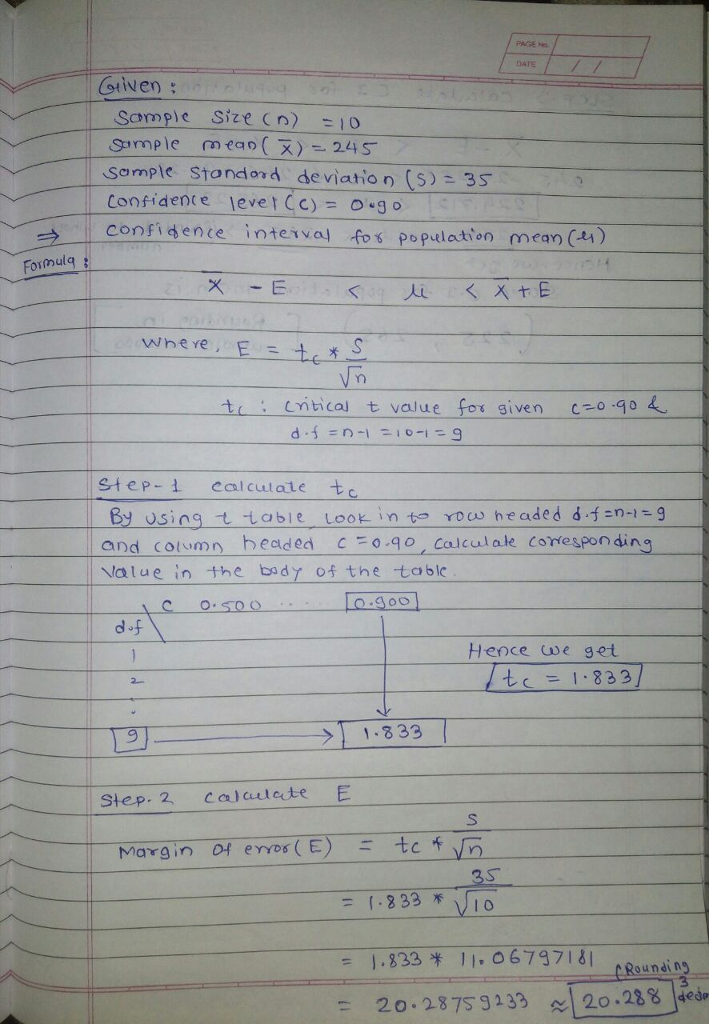 PAGE No.
DATE / /
Given :
Sample size (n) = 10
sample mean( x̄ ) = 245
sample standard deviation (S) = 35
Confidence level (C) = 0.90
⇒ confidence interval for population mean (μ)
Formula :
x̄ - E < μ < x̄ + E
where, E = tc * S/√n
tc : critical t value for given c=0.90 &
d.f = n-1 = 10-1 = 9
Step-1 calculate tc
By using t table, Look in to row headed d.f=n-1=9
and column headed c=0.90, calculate corresponding
value in the body of the table.
c 0.500 ... 0.900
d.f
1
Hence we get
2
tc = 1.833
:
9 → 1.833
Step. 2 calculate E
Margin of error (E) = tc * S/√n
= 1.833 * 35/√10
= 1.833 * 11.06797181
(Rounding
= 20.28759233 ≈ 20.288 3